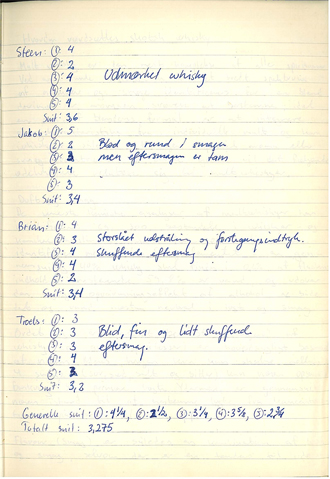 Steen: ①: 4
②: 2
③: 4 Udmærket whisky
④: 4
⑤: 4
Snit: 3,6
Jakob: ①: 5
②: 2 Blød og rund i smagen
③: 3 men eftersmagen er tam
④: 4
⑤: 3
Snit: 3,4
Brian: ①: 4
②: 3 Storslået udstråling og førstegangsindtryk.
③: 4 Skuffende eftersmag
④: 4
⑤: 2
Snit: 3,4
Troels: ①: 3
②: 3 Blid, fin og lidt skuffende
③: 3 eftersmag.
④: 4
⑤: 3
Snit: 3,2
Generelle snit: ①: 4¼, ②: 2½, ③: 3¼, ④: 3¾, ⑤: 2¾
Totalt snit: 3,275